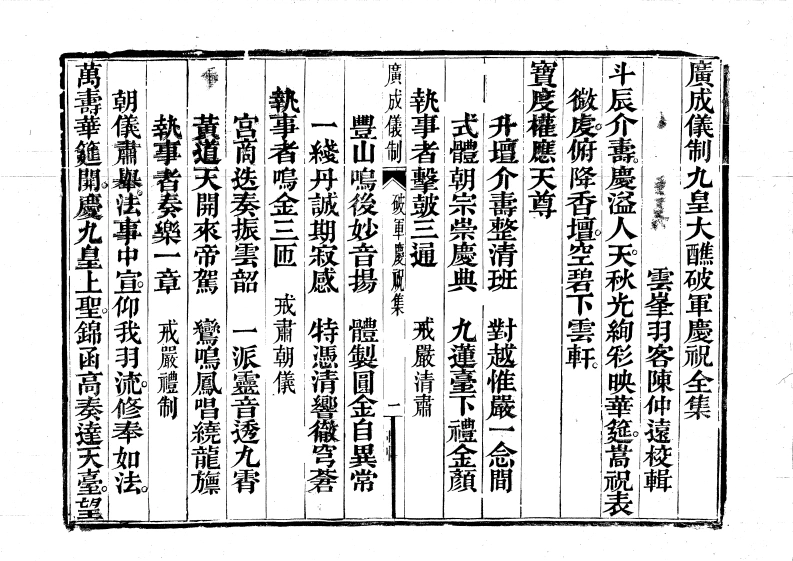 廣成儀制九皇大醮破軍慶祝全集
雲峯羽客陳仲遠校輯
斗辰介壽。慶溢人天。秋光絢彩映華筵。嵩祝表
微虔。俯降香壇。空碧下雲軒。
寶度權應天尊
升壇介壽整清班　對越惟嚴一念間
式體朝宗崇慶典　九蓮臺下禮金顏
執事者擊鼓三通　戒嚴清肅
廣成儀制　破軍慶祝集　一
豐山鳴後妙音揚　體製圓金自異常
一綫丹誠期寂感　特憑清響徹穹蒼
執事者鳴金三匝　戒肅朝儀
宮商迭奏振雲韶　一派靈音透九霄
黃道天開來帝駕　鸞鳴鳳唱繞龍旜
執事者奏樂一章　戒嚴禮制
朝儀肅舉。法事中宣。仰我羽流。修奉如法。
萬壽華筵開。慶九皇上聖。錦函高奏達天臺。望